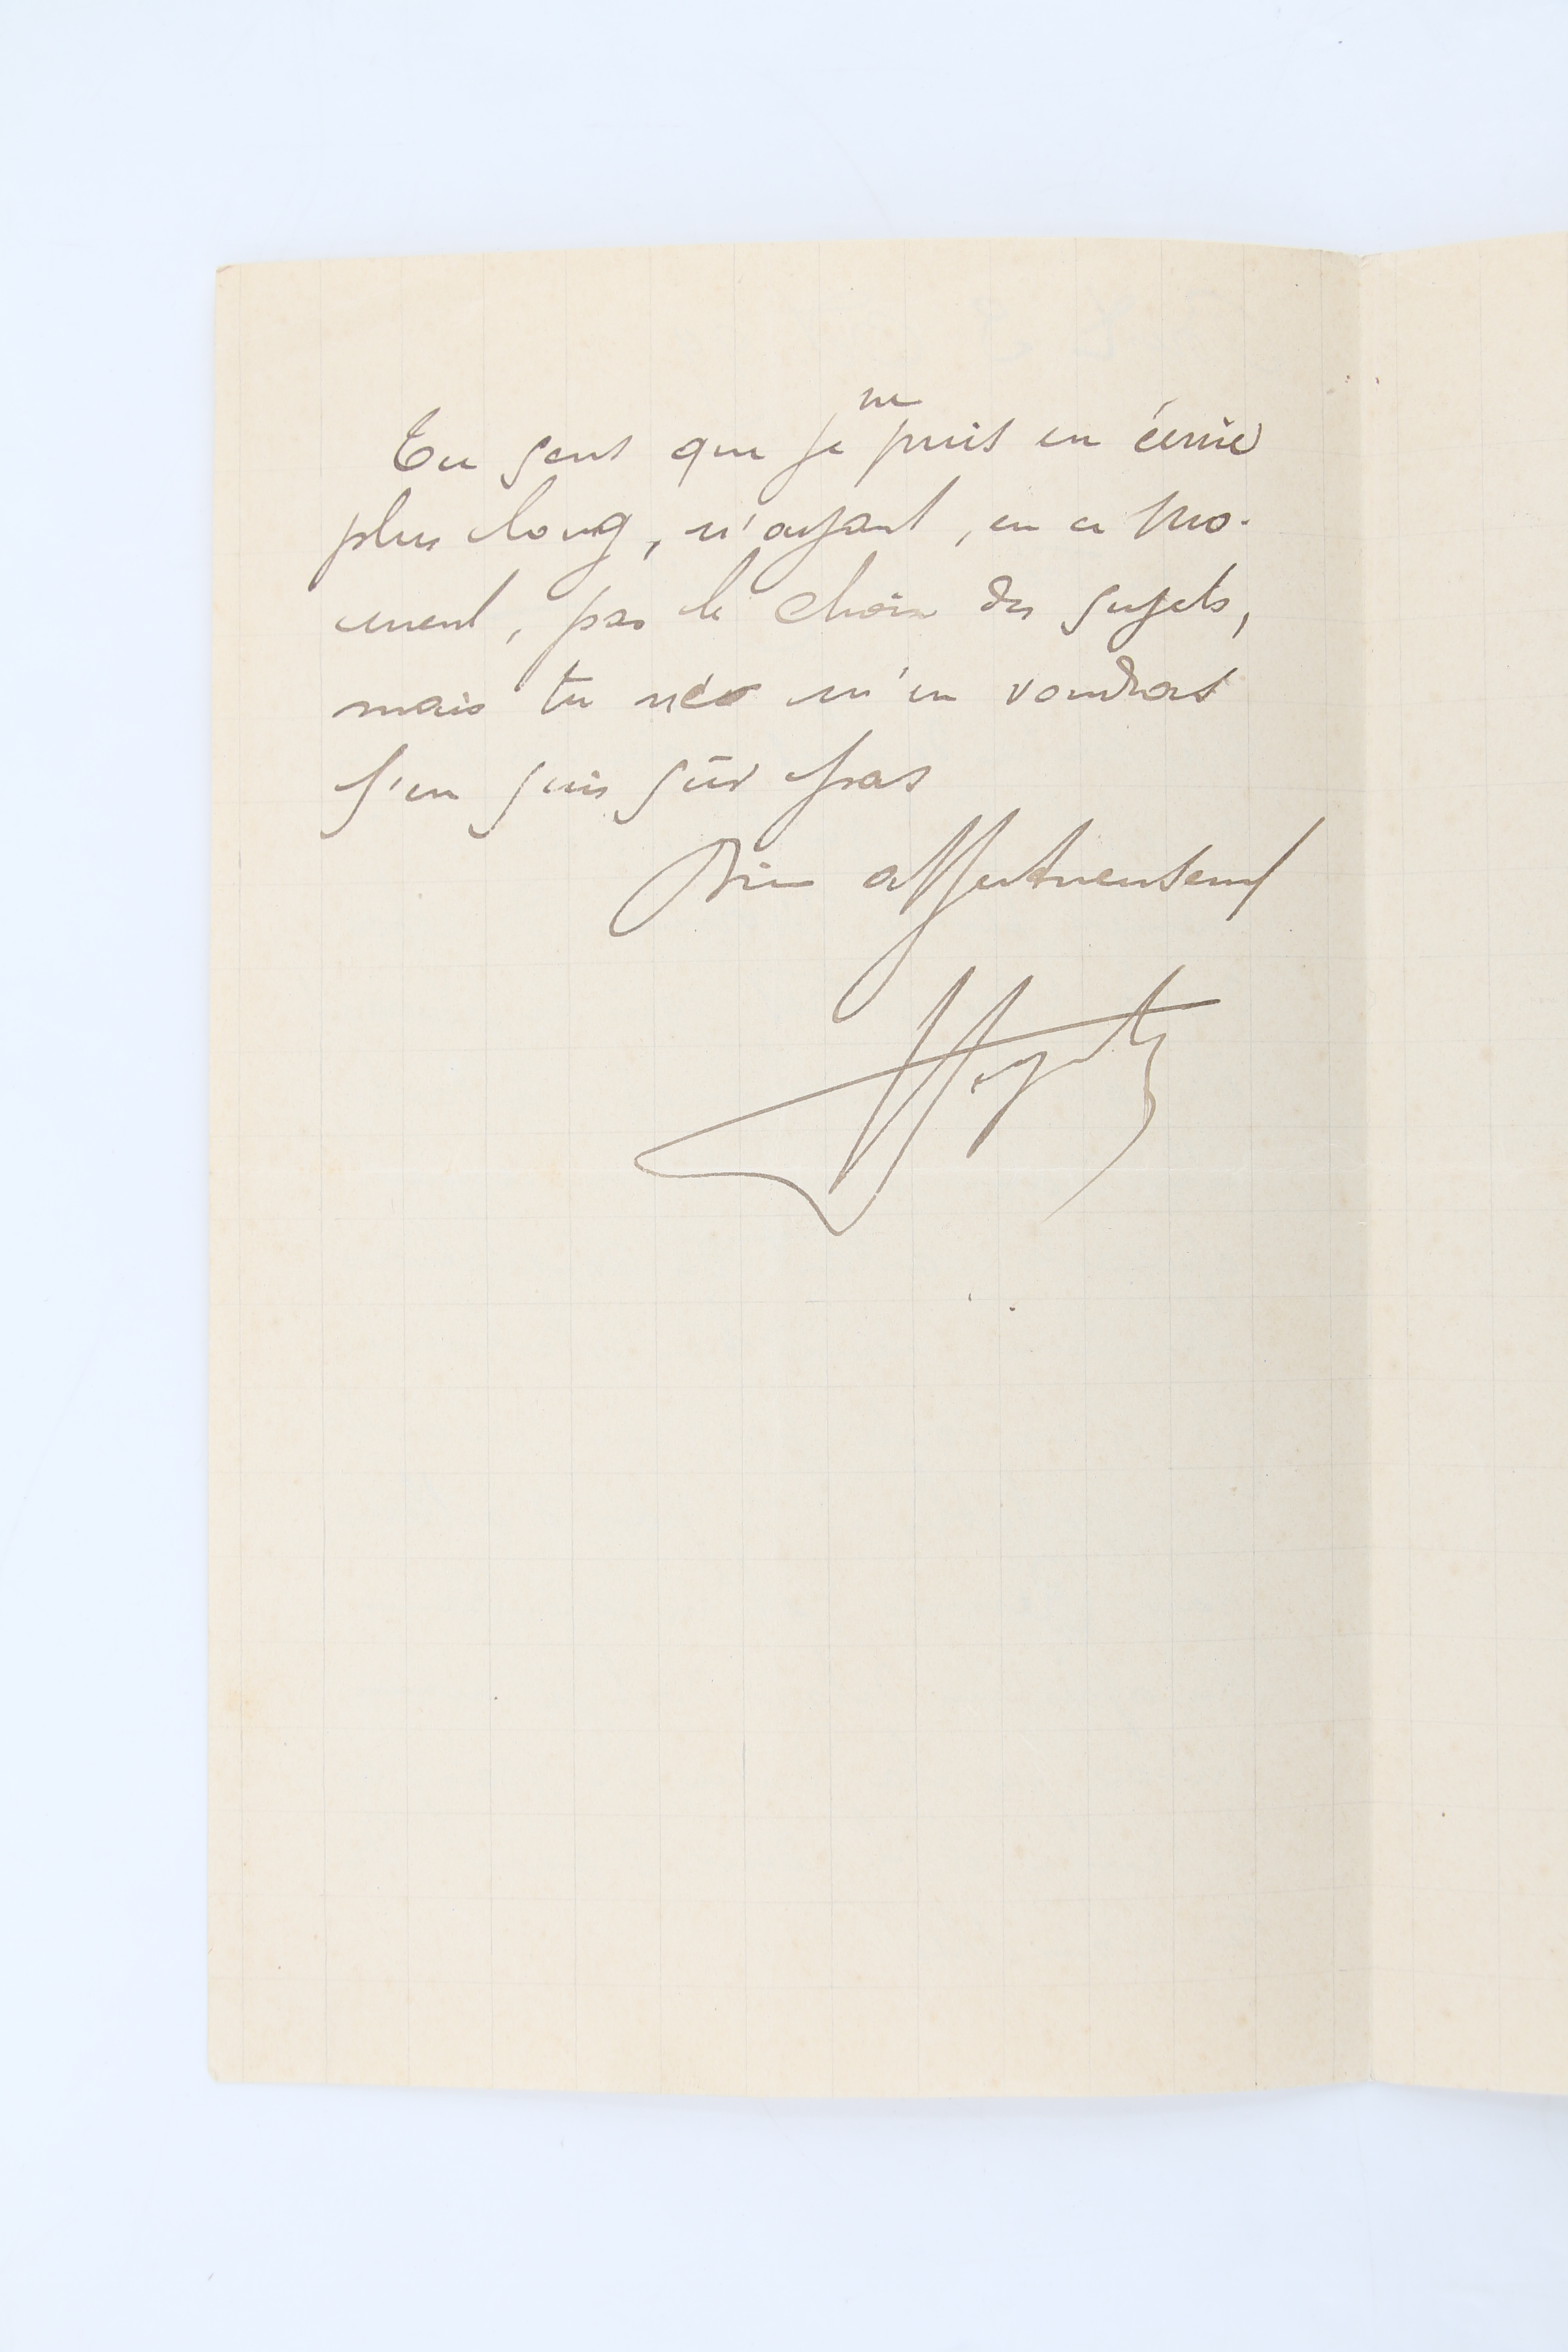 Tu sens que je ne puis en écrire
plus long, n'ayant, en ce mo-
ment, pas le choix des sujets,
mais tu ne m'en voudras
j'en suis sûr pas
Bien affectueusement